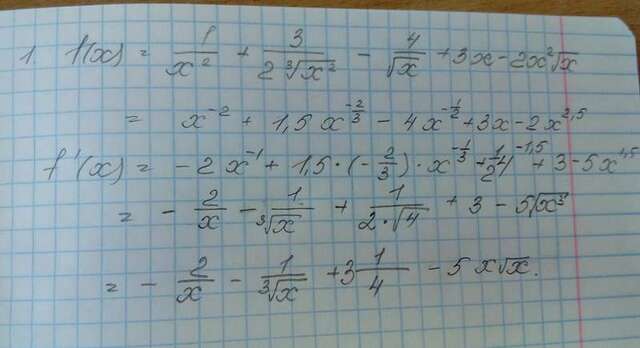 1. f(x) = 1/x² + 3/(2∛x²) - 4/√x + 3x - 2x²√x
= x⁻² + 1,5x^(-2/3) - 4x^(-1/2) + 3x - 2x^2,5
f'(x) = -2x⁻¹ + 1,5·(-2/3)·x^(-1/3) + 1/2 4^(-1,5) + 3 - 5x^1,5
= - 2/x - 1/∛x + 1/(2·√4) + 3 - 5√x³
= - 2/x - 1/∛x + 3 1/4 - 5x√x.